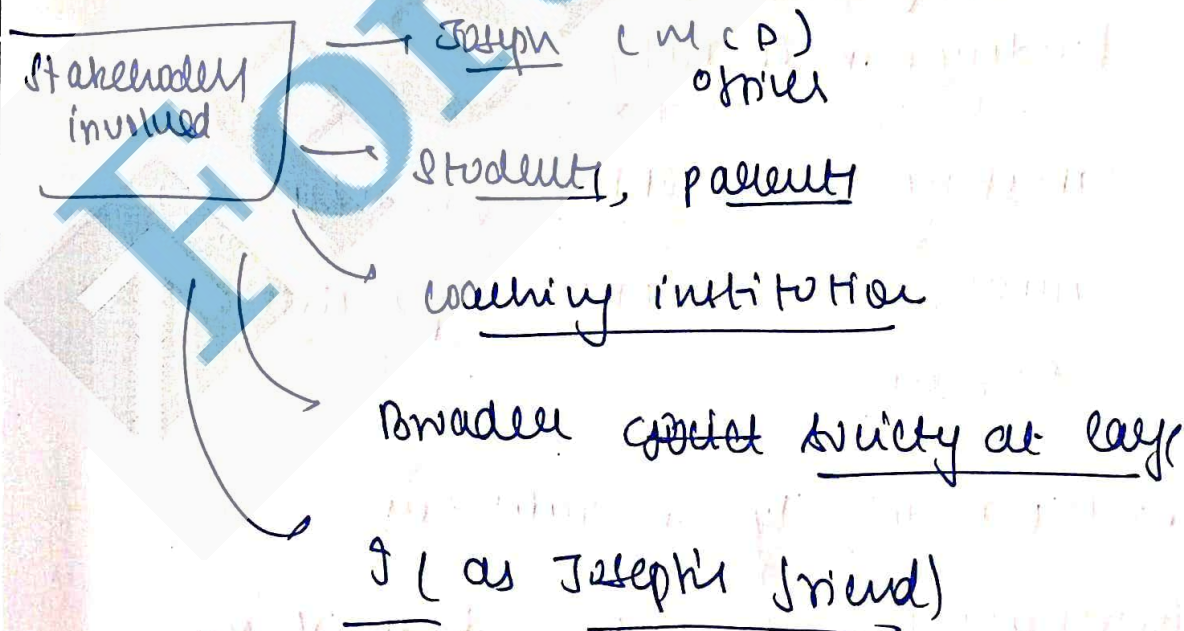 Stakeholders
involved
Joseph (MCD)
officer
Students, parents
coaching institution
Broader society at large
I (as Joseph's friend)
FOR